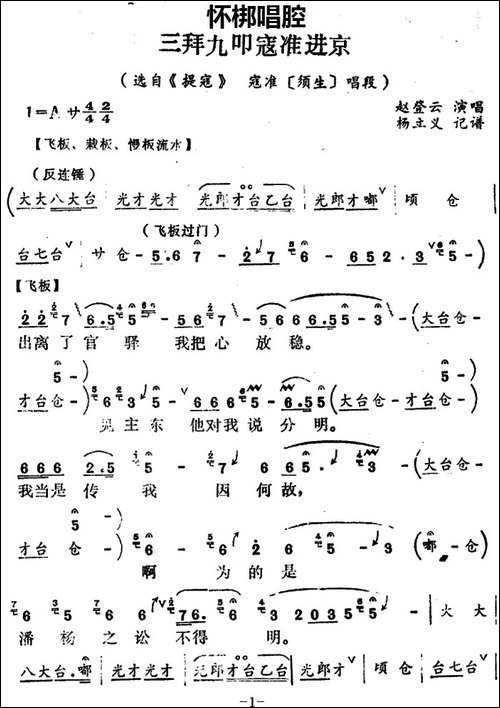 怀梆唱腔
三拜九叩寇准进京
(选自《提寇》 寇准〔须生〕唱段)
1=A サ 4/4 2/4
赵登云 演唱
杨立义 记谱
【飞板、栽板、慢板流水】
(反连锤)
(大大八大台 光才光才 光郎才台乙台 光郎才嘟 | 顷 仓
(飞板过门)
台七台 | サ 仓 - 5·6 7 - 2 7 6 - 6 5 2 · 3 5 -)
【飞板】
2 2 7 6·5 5 - 5 6 7 - 5 6 6 6·5 5 - 3 - (大台仓 -
出离了官驿 我把心放稳。
5 -)
才台仓 - 6 3 5 - 6 6 6 5 - 6·5 5 (大台仓 - 才台仓 -
见主东 他对我说分明。
6 6 6 2·5 5 - 7 6 6·5· 3 - (大台仓 -
我当是传我 因何故,
5 -)
才台 仓 - 6 - 6 2 6 5 - 3 (嘟 - 仓
啊 为的是
6 5 6 6 - 7 6· 6 3 2 0 3 5 5 - | 大 大
潘杨之讼不得 明。
八大台·嘟 | 光才光才 | 光郎才台乙台 | 光郎才 | 顷 仓 | 台七台 |
-1-